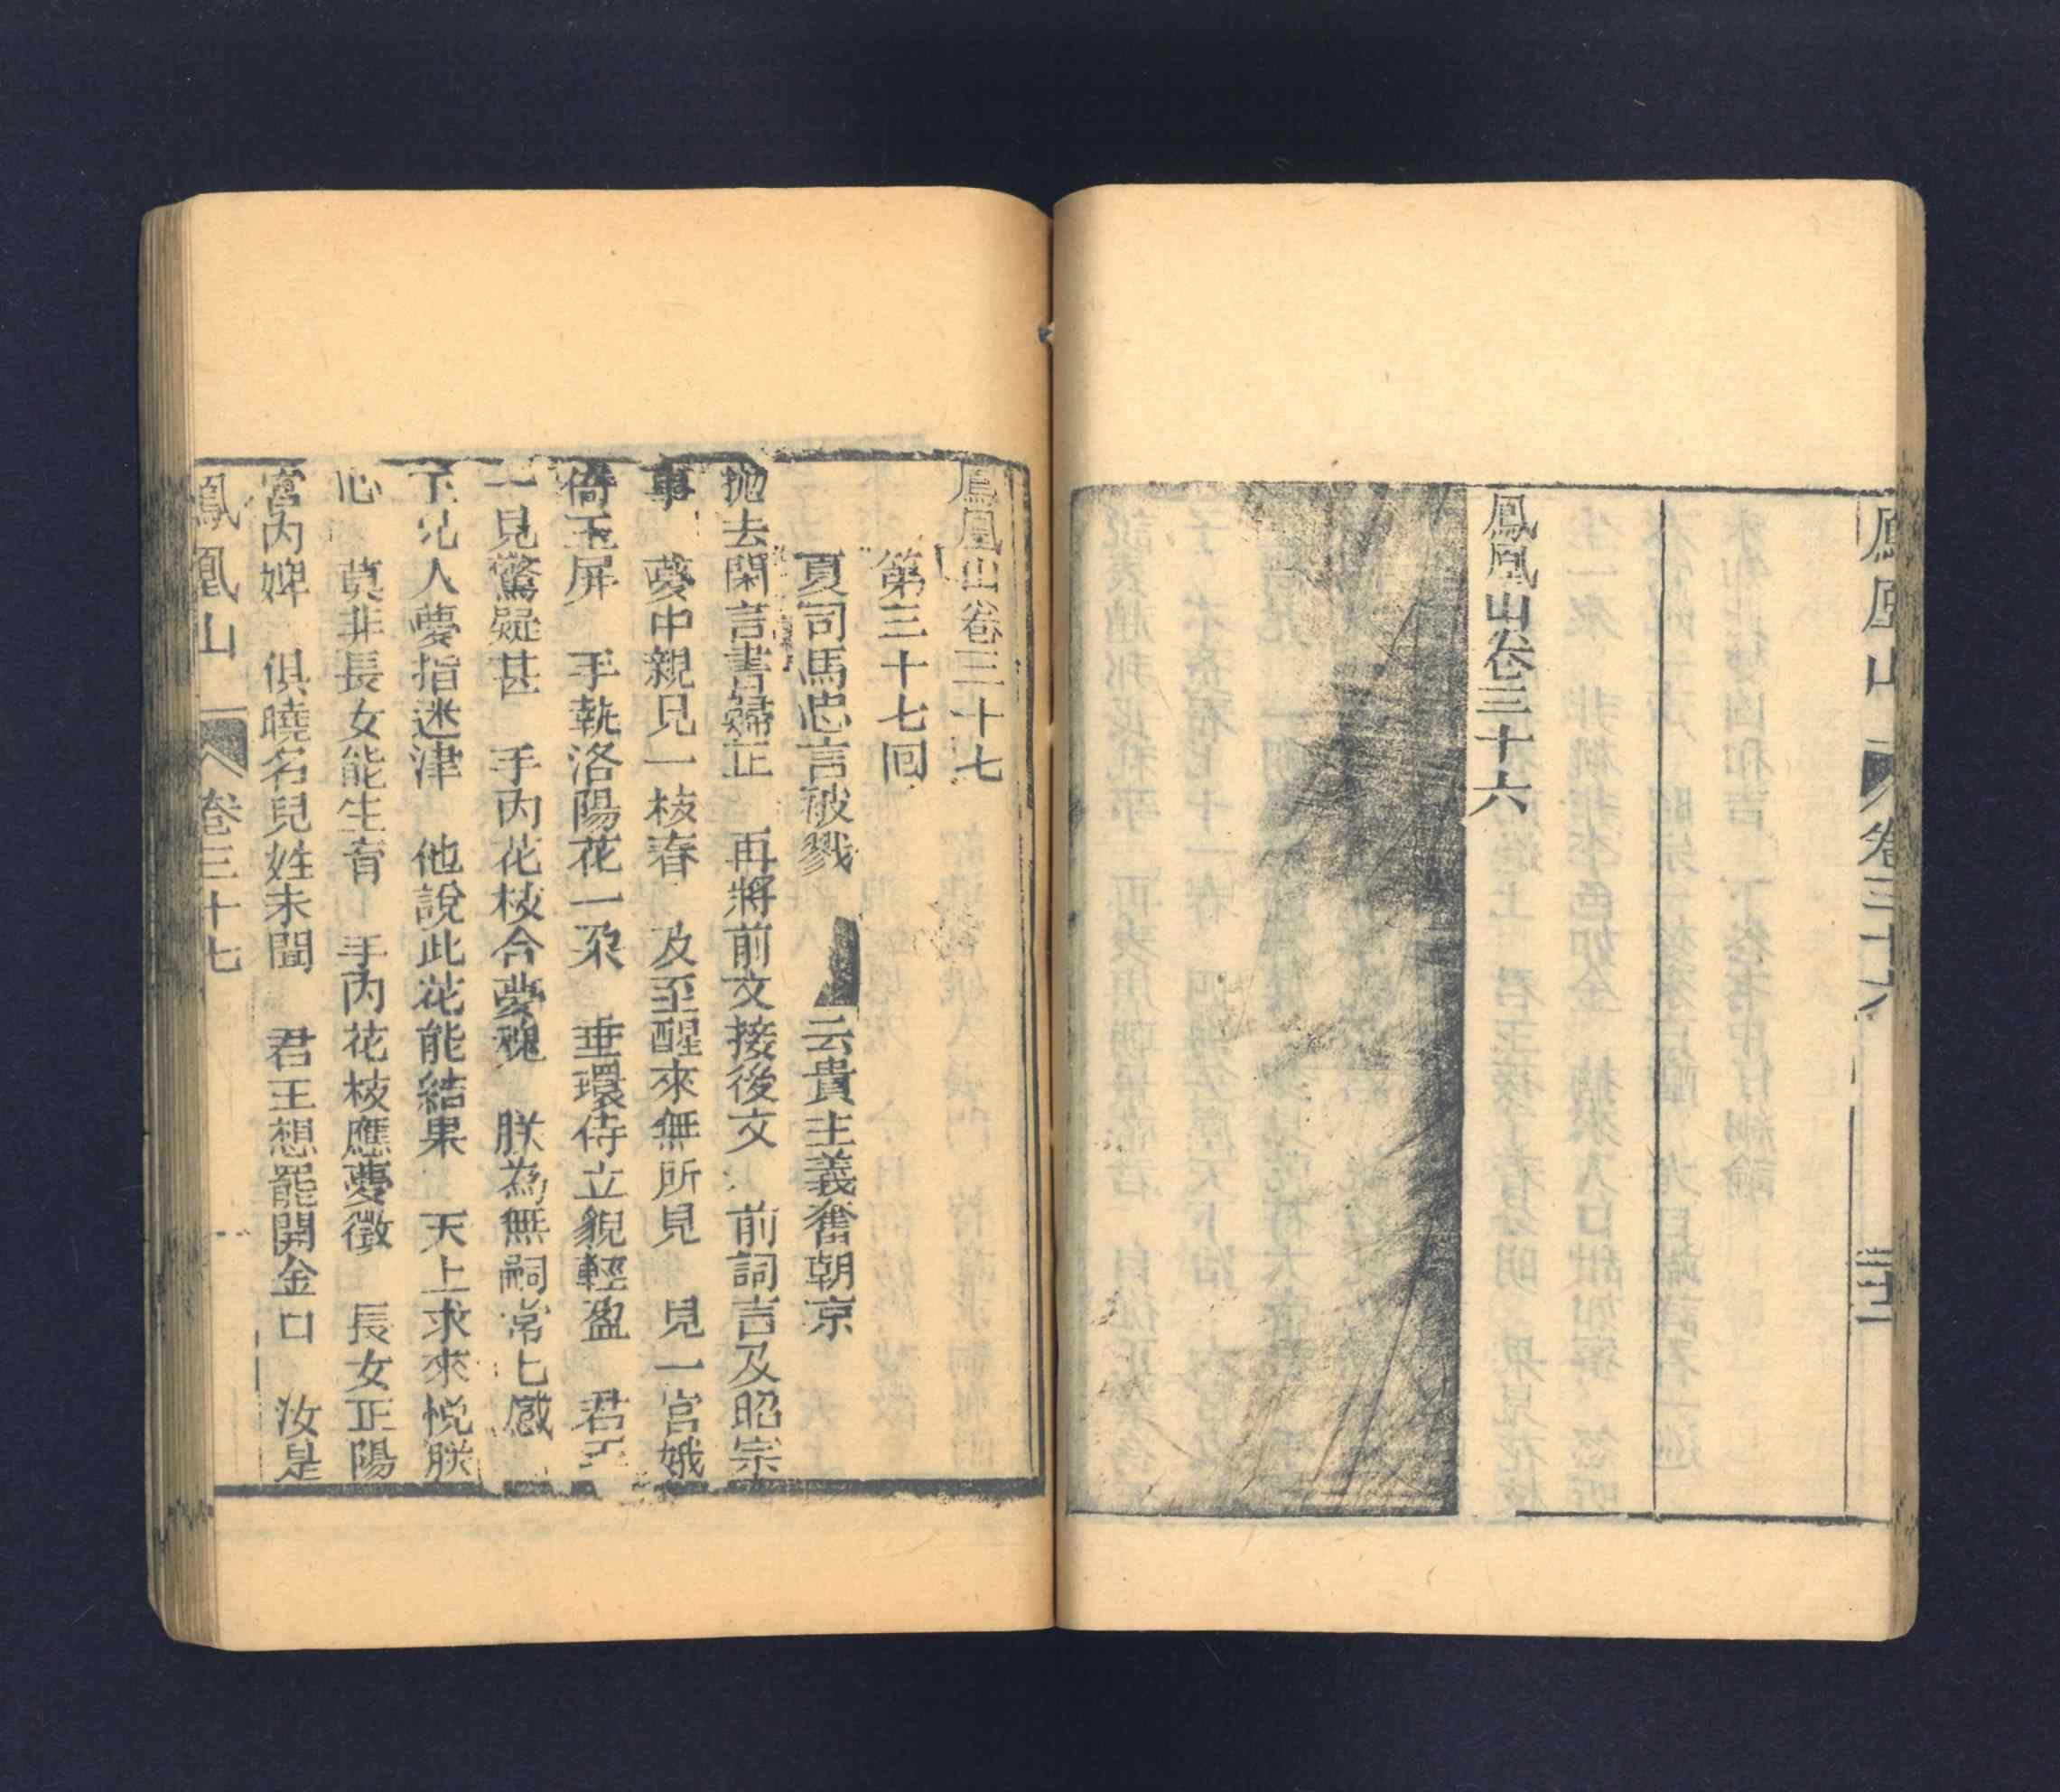 鳳凰山 卷三十六
鳳凰山卷三十六
鳳凰山卷三十七
第三十七回
夏司馬忠言被戮 云貴主義奮朝京
拋去閑言書歸正 再將前文接後文 前詞言及昭宗
事 夢中親見一枝春 及至醒來無所見 見一宮娥
倚玉屏 手執洛陽花一朶 垂環侍立貌輕盈 君王
一見驚疑甚 手內花枝合夢魂 朕為無嗣常七感
下 人夢指迷津 他說此花能結果 天上求來悅朕
心 莫非長女能生育 手內花枝應夢徵 長女正陽
宮內婢 俱曉名兒姓未聞 君王想罷開金口 汝是
鳳凰山 卷三十七